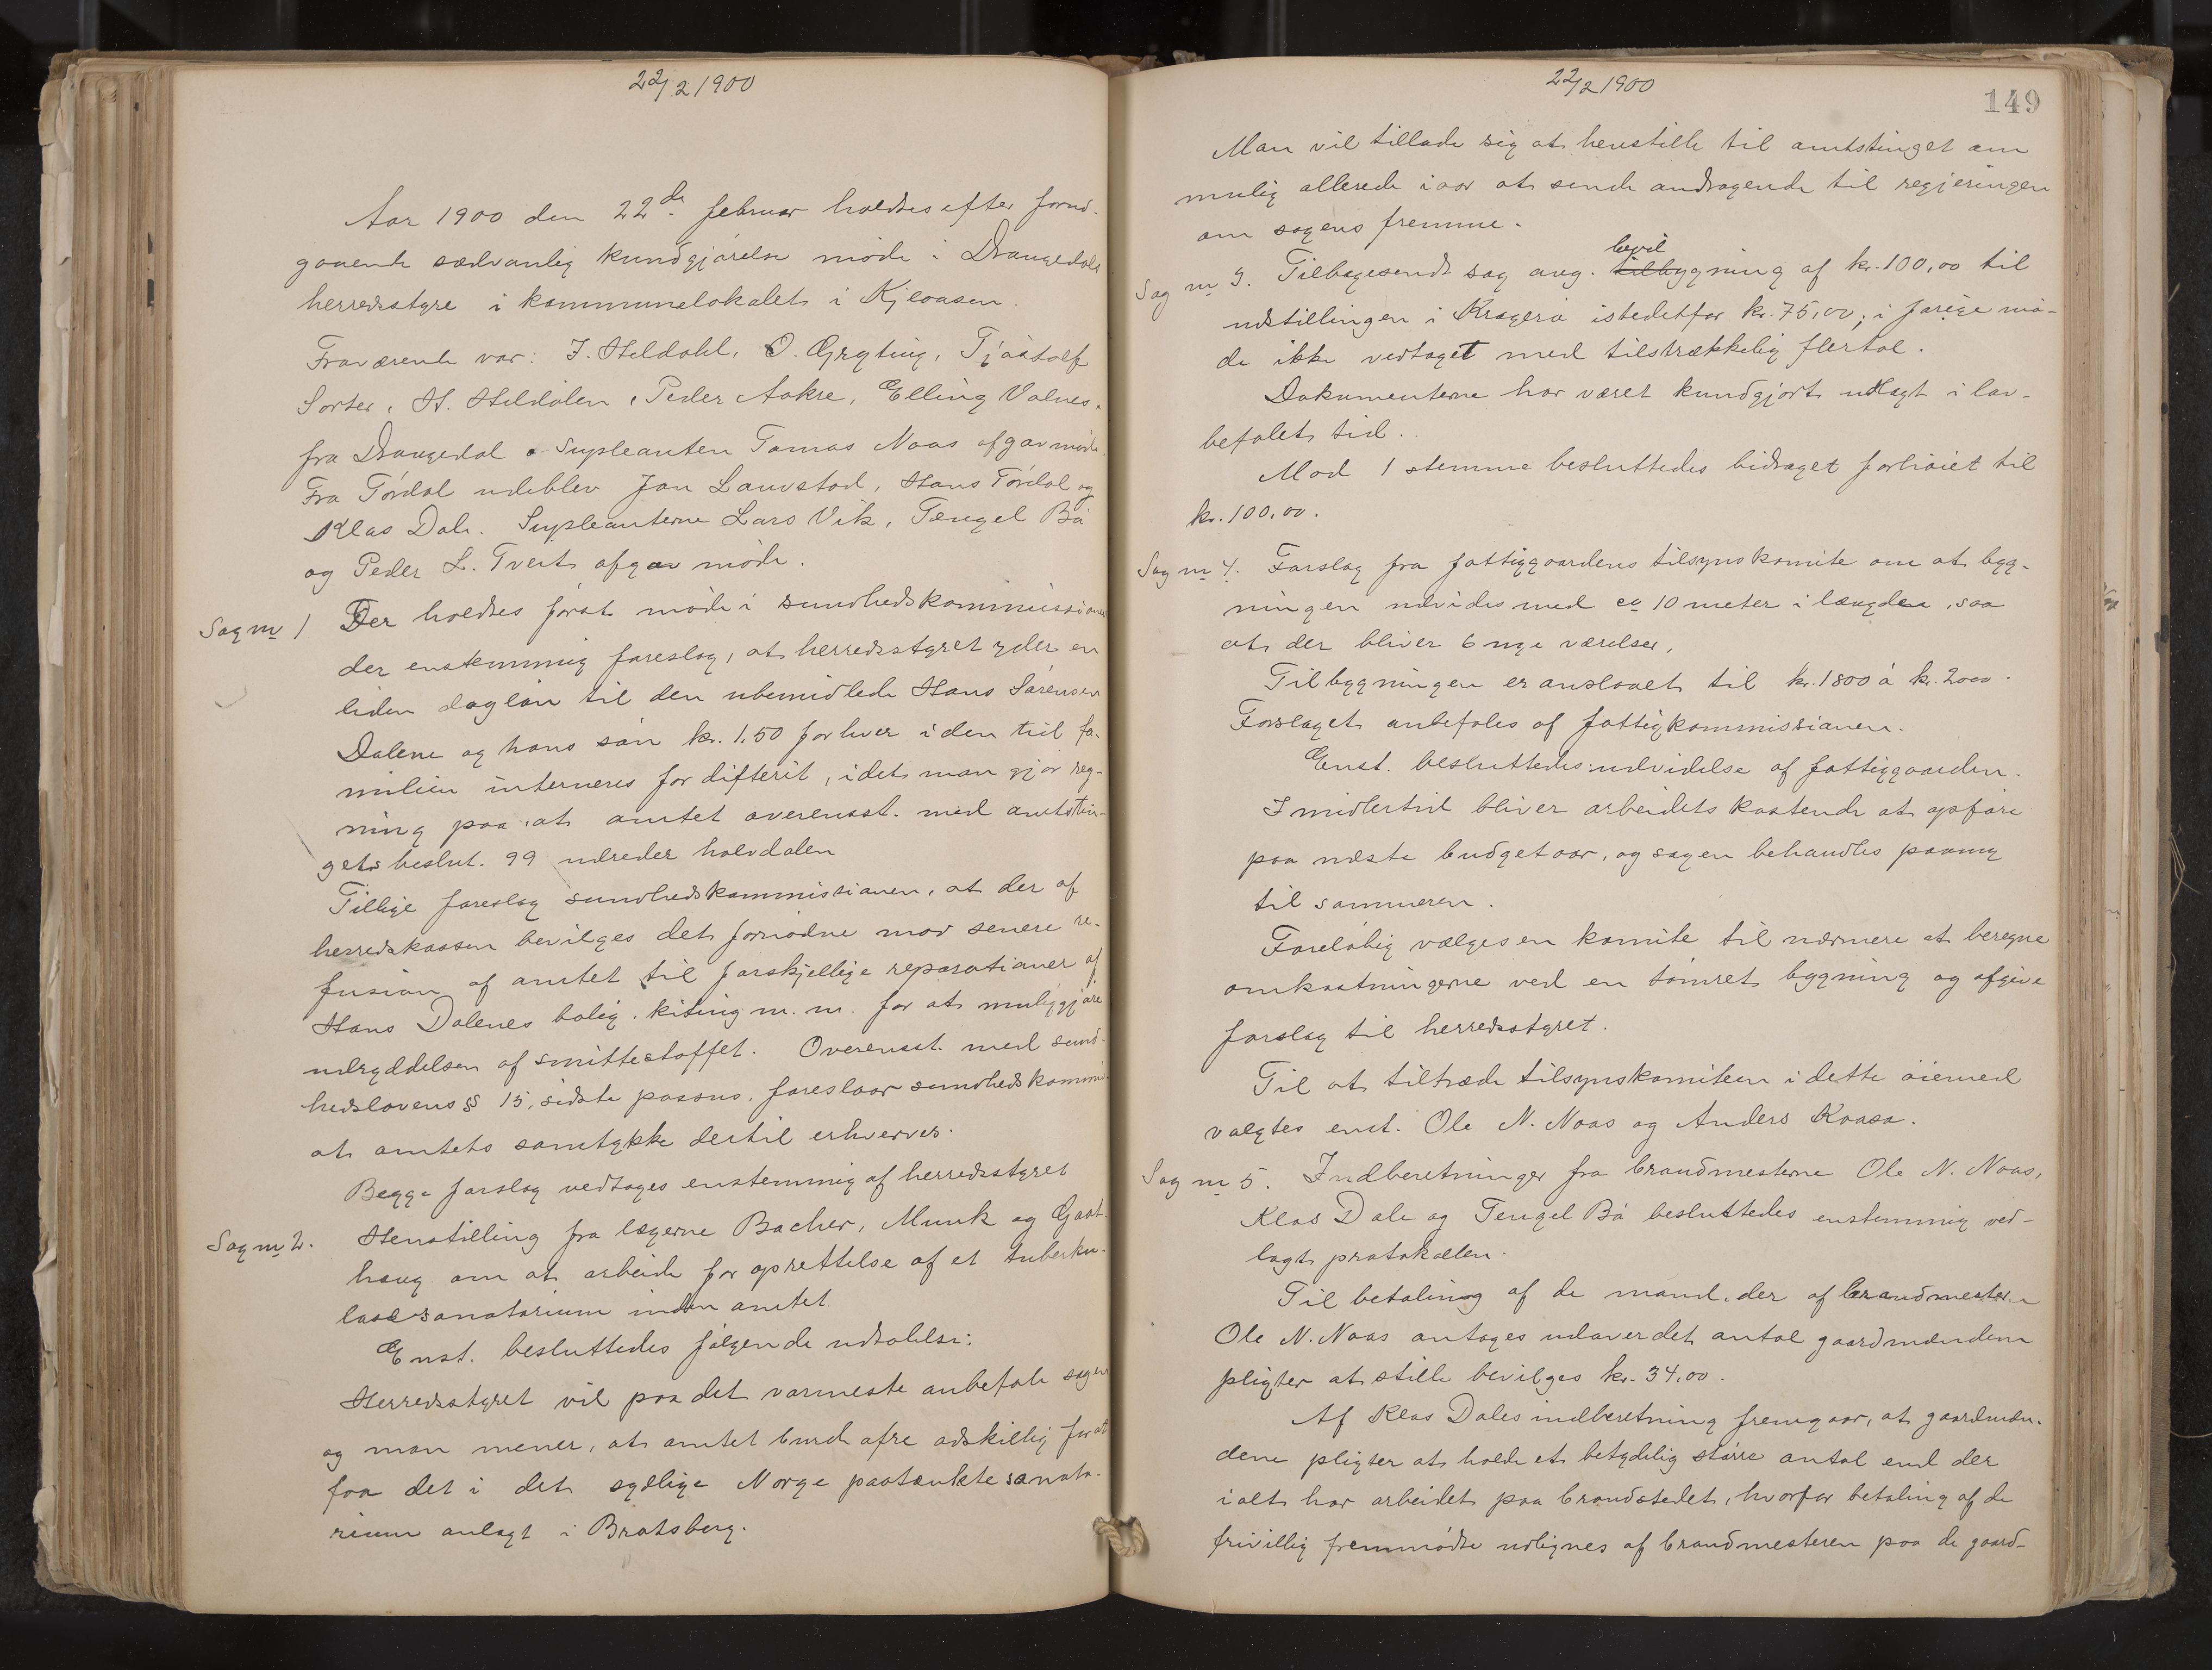 22/2 1900
Aar 1900 den 22de februar holdtes efter forud-
gaaende sædvanlig kundgjørelse møde i Drangedals
herredsstyre i kommunelokalet i Kjeaasen.
Fraværende var: J. Heldahl, O. Gryting, Tjøstolf
Sorter, H. Heldalen, Peder Aakre, Elling Valnes.
fra Drangedal. Supleanten Tomas Naas afgav møde.
Fra Tørdal udeblev Jon Lauvstad, Hans Tørdal og
Klas Dale. Supleanterne Lars Vik, Tengel Bø
og Peder L. Tveit afgav møde.
Sag nr 1 Der holdtes først møde i sundhedskommissionen
der enstemmig foreslog, at herredsstyret yder en
liden dagløn til den ubemidlede Hans Sørensen
Dalene og hans søn kr. 1,50 for hver i den tid fa-
milien interneres for difterit, idet man gjør reg-
ning paa, at amtet overensst. med amtstin-
gets beslut. 99 udreder halvdelen
Tillige foreslog sundhedskommissionen, at der af
herredskassen bevilges det fornødne mod senere re-
fusion af amtet til forskjellige reparationer af
Hans Dalenes bolig, kiting m. m. for at muliggjøre
udryddelsen af smittestoffet. Overensst. med sund-
hedslovens § 15, sidste passus, foreslaar sundhedskommis.
at amtets samtykke dertil erhverves.
Begge forslag vedtages enstemmig af herredsstyret
Sag nr 2. Henstilling fra lægerne Bacher, Munk og Gaat-
haug om at arbeide for oprettelse af et tuberku-
losesanatorium inden amtet.
Enst. besluttedes følgende udtalelse:
Herredsstyret vil paa det varmeste anbefale sagen
og man mener, at amtet burde ofre adskillig for at
faa det i det sydlige Norge paatænkte sanato-
rium anlagt i Bratsberg.
22/2 1900
149
Man vil tillade sig at henstille til amtstinget om
mulig allerede iaar at sende andragende til regjeringen
om sagens fremme.
bevil
Sag nr 3. Tilbagesendt sag ang. tilbygning af kr. 100,00 til
udstillingen i Kragerø istedetfor kr. 75,00; i forige mø-
de ikke vedtaget med tilstrækkelig flertal.
Dokumenterne har været kundgjort udlagt i lov-
befalet tid.
Mod 1 stemme besluttedes bidraget forhøiet til
kr. 100,00.
Sag nr 4. Forslag fra fattiggaardens tilsynskomite om at byg-
ningen udvides med ca 10 meter i længden, saa
at der bliver 6 nye værelser.
Tilbygningen er anslaaet til kr. 1800 à kr. 2000.
Forslaget anbefales af fattigkommissionen.
Enst. besluttedes udvidelse af fattiggaarden.
Imidlertid bliver arbeidets kostende at opføre
paa næste budgetaar, og sagen behandles paany
til sommeren.
Foreløbig vælges en komite til nærmere at beregne
omkostningerne ved en tømret bygning og afgive
forslag til herredsstyret.
Til at tiltræde tilsynskomiteen i dette øiemed
valgtes enst. Ole N. Naas og Anders Kaasa.
Sag nr 5. Indberetninger fra brandmesterne Ole N. Naas,
Klas Dale og Tengel Bø besluttedes enstemmig ved-
lagt protokollen.
Til betaling af de mand, der af brandmesteren
Ole N. Naas antages udover det antal gaardmændene
pligter at stille bevilges kr. 34,00.
Af Klas Dales indberetning fremgaar, at gaardmæn-
dene pligter at holde et betydelig større antal end der
ialt har arbeidet paa brandstedet, hvorfor betaling af de
frivillig fremmødte udlignes af brandmesteren paa de gaard-